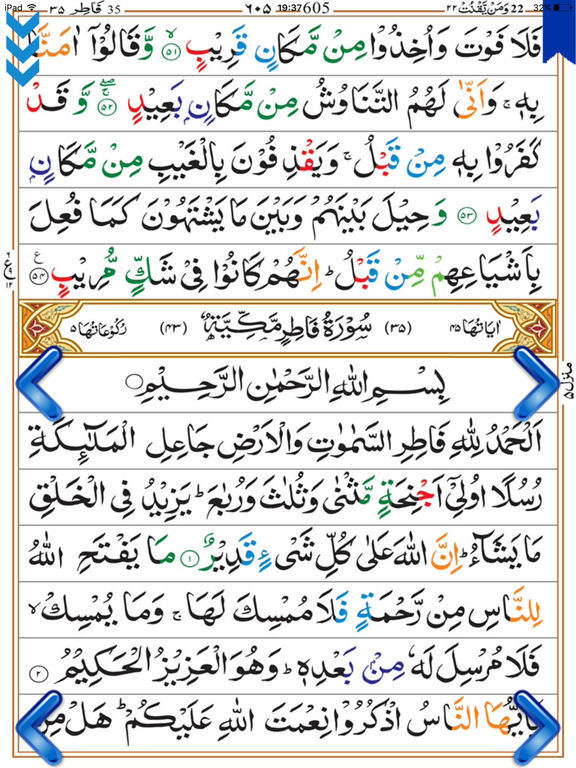 iPad 19:37 32%
۳۵ فاطر 35 ۶۰۵ 605 22 وَمَنْ يَّقْنُتْ ۲۲
فَلَا فَوْتَ وَاُخِذُوْا مِنْ مَّكَانٍ قَرِيْبٍ ۙ﴿۵۱﴾ وَّقَالُوْٓا اٰمَنَّا
بِهٖ ۚ وَاَنّٰى لَهُمُ التَّنَاوُشُ مِنْ مَّكَانٍۭ بَعِيْدٍ ۚۖ﴿۵۲﴾ وَّقَدْ
كَفَرُوْا بِهٖ مِنْ قَبْلُ ۚ وَيَقْذِفُوْنَ بِالْغَيْبِ مِنْ مَّكَانٍۭ
بَعِيْدٍ ﴿۵۳﴾ وَحِيْلَ بَيْنَهُمْ وَبَيْنَ مَا يَشْتَهُوْنَ كَمَا فُعِلَ
بِاَشْيَاعِهِمْ مِّنْ قَبْلُ ؕ اِنَّهُمْ كَانُوْا فِىْ شَكٍّ مُّرِيْبٍ ﴿۵۴﴾ ع
اٰيَاتُهَا ۴۵ (۳۵) سُوْرَةُ فَاطِرٍ مَّكِّيَّةٌ (۴۳) رُكُوْعَاتُهَا ۵
بِسْمِ اللهِ الرَّحْمٰنِ الرَّحِيْمِ
منزل ۵
اَلْحَمْدُ لِلّٰهِ فَاطِرِ السَّمٰوٰتِ وَالْاَرْضِ جَاعِلِ الْمَلٰٓئِكَةِ
رُسُلًا اُولِىْٓ اَجْنِحَةٍ مَّثْنٰى وَثُلٰثَ وَرُبٰعَ ؕ يَزِيْدُ فِى الْخَلْقِ
مَا يَشَآءُ ؕ اِنَّ اللهَ عَلٰى كُلِّ شَىْءٍ قَدِيْرٌ ﴿۱﴾ مَا يَفْتَحِ اللهُ
لِلنَّاسِ مِنْ رَّحْمَةٍ فَلَا مُمْسِكَ لَهَا ۚ وَمَا يُمْسِكْ ۙ
فَلَا مُرْسِلَ لَهٗ مِنْۢ بَعْدِهٖ ؕ وَهُوَ الْعَزِيْزُ الْحَكِيْمُ ﴿۲﴾
يٰٓاَيُّهَا النَّاسُ اذْكُرُوْا نِعْمَتَ اللهِ عَلَيْكُمْ ؕ هَلْ مِنْ